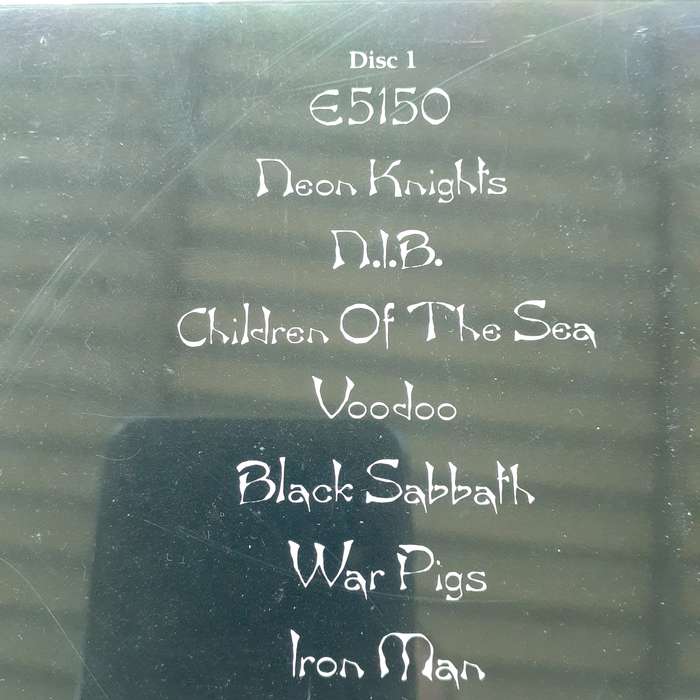 Disc 1
E5150
Neon Knights
N.I.B.
Children Of The Sea
Voodoo
Black Sabbath
War Pigs
Iron Man